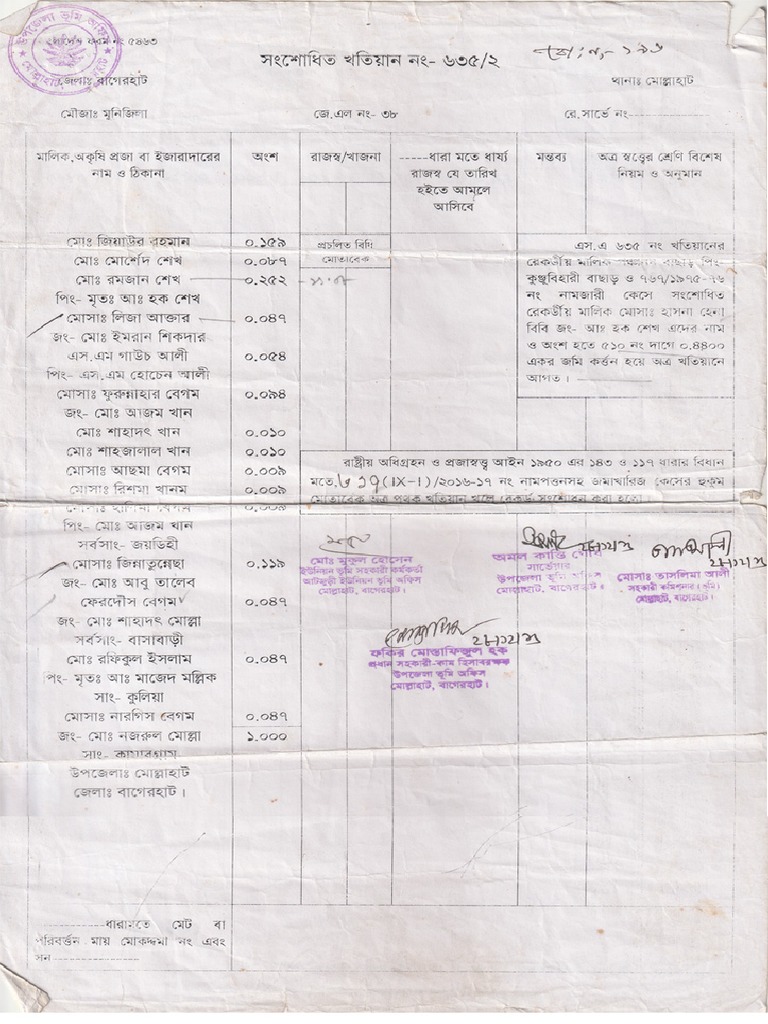 উপজেলা ভূমি অফিস
মোল্লাহাট, বাগেরহাট
ফরম নং ৫৪৬৩
সংশোধিত খতিয়ান নং- ৬৩৫/২
জেলাঃ বাগেরহাট
থানাঃ মোল্লাহাট
মৌজাঃ মুনিজিলা
জে.এল নং- ৩৮
রে.সার্ভে নং-
মালিক,অকৃষি প্রজা বা ইজারাদারের নাম ও ঠিকানা
অংশ
রাজস্ব/খাজনা
-----ধারা মতে ধার্য্য রাজস্ব যে তারিখ হইতে আমলে আসিবে
মন্তব্য
অত্র স্বত্বের শ্রেণি বিশেষ নিয়ম ও অনুমান
মোঃ জিয়াউর রহমান ০.১৫৯
মোঃ মোর্শেদ শেখ ০.০৮৭
মোঃ রমজান শেখ ০.২৫২
পিং- মৃতঃ আঃ হক শেখ
মোসাঃ লিজা আক্তার ০.০৪৭
জং- মোঃ ইমরান শিকদার
এস.এম গাউচ আলী ০.০৫৪
পিং- এস.এম হোচেন আলী
মোসাঃ ফুরুন্নাহার বেগম ০.০৯৪
জং- মোঃ আজম খান
মোঃ শাহাদৎ খান ০.০১০
মোঃ শাহজালাল খান ০.০১০
মোসাঃ আছমা বেগম ০.০০৯
মোসাঃ রিশমা খানম ০.০০৯
পিং- মোঃ আজম খান
সর্বসাং- জয়ডিহী
মোসাঃ জিন্নাতুন্নেছা ০.১১৯
জং- মোঃ আবু তালেব
ফেরদৌস বেগম ০.০৪৭
জং- মোঃ শাহাদৎ মোল্লা
সর্বসাং- বাসাবাড়ী
মোঃ রফিকুল ইসলাম ০.০৪৭
পিং- মৃতঃ আঃ মাজেদ মল্লিক
সাং- কুলিয়া
মোসাঃ নারগিস বেগম ০.০৪৭
জং- মোঃ নজরুল মোল্লা ১.০০০
উপজেলাঃ মোল্লাহাট
জেলাঃ বাগেরহাট।
প্রচলিত বিধি
মোতাবেক
এস.এ ৬৩৫ নং খতিয়ানের
রেকর্ডীয় মালিক বাছাড় পিং-
কুঞ্জুবিহারী বাছাড় ও ৭৬৭/১৯৭৫-৭৬
নং নামজারী কেসে সংশোধিত
রেকর্ডীয় মালিক মোসাঃ হাসনা হেনা
বিবি জং- আঃ হক শেখ এদের নাম
ও অংশ হতে ৫১০ নং দাগে ০.৪৪০০
একর জমি কর্ত্তন হয়ে অত্র খতিয়ানে
আগত।
রাষ্ট্রীয় অধিগ্রহন ও প্রজাস্বত্ত্ব আইন ১৯৫০ এর ১৪৩ ও ১১৭ ধারার বিধান
মতে, (IX-I)/২০১৬-১৭ নং নামপত্তনসহ জমাখারিজ কেসের হুকুম
মোতাবেক অত্র পৃথক খতিয়ান খুলে রেকর্ড সংশোধন করা হলো।
মোঃ মুকুল হোসেন
ইউনিয়ন ভূমি সহকারী কর্মকর্তা
আটজুড়ী ইউনিয়ন ভূমি অফিস
মোল্লাহাট, বাগেরহাট।
অমল কান্তি ঘোষ
সার্ভেয়ার
উপজেলা ভূমি অফিস
মোল্লাহাট, বাগেরহাট।
মোসাঃ তাসলিমা আলী
সহকারী কমিশনার (ভূমি)
মোল্লাহাট, বাগেরহাট।
ফকির মোস্তাফিজুল হক
প্রধান সহকারী-কাম হিসাবরক্ষক
উপজেলা ভূমি অফিস
মোল্লাহাট, বাগেরহাট।
--------ধারামতে মেট বা
পরিবর্ত্তন মায় মোকদ্দমা নং এবং
সন